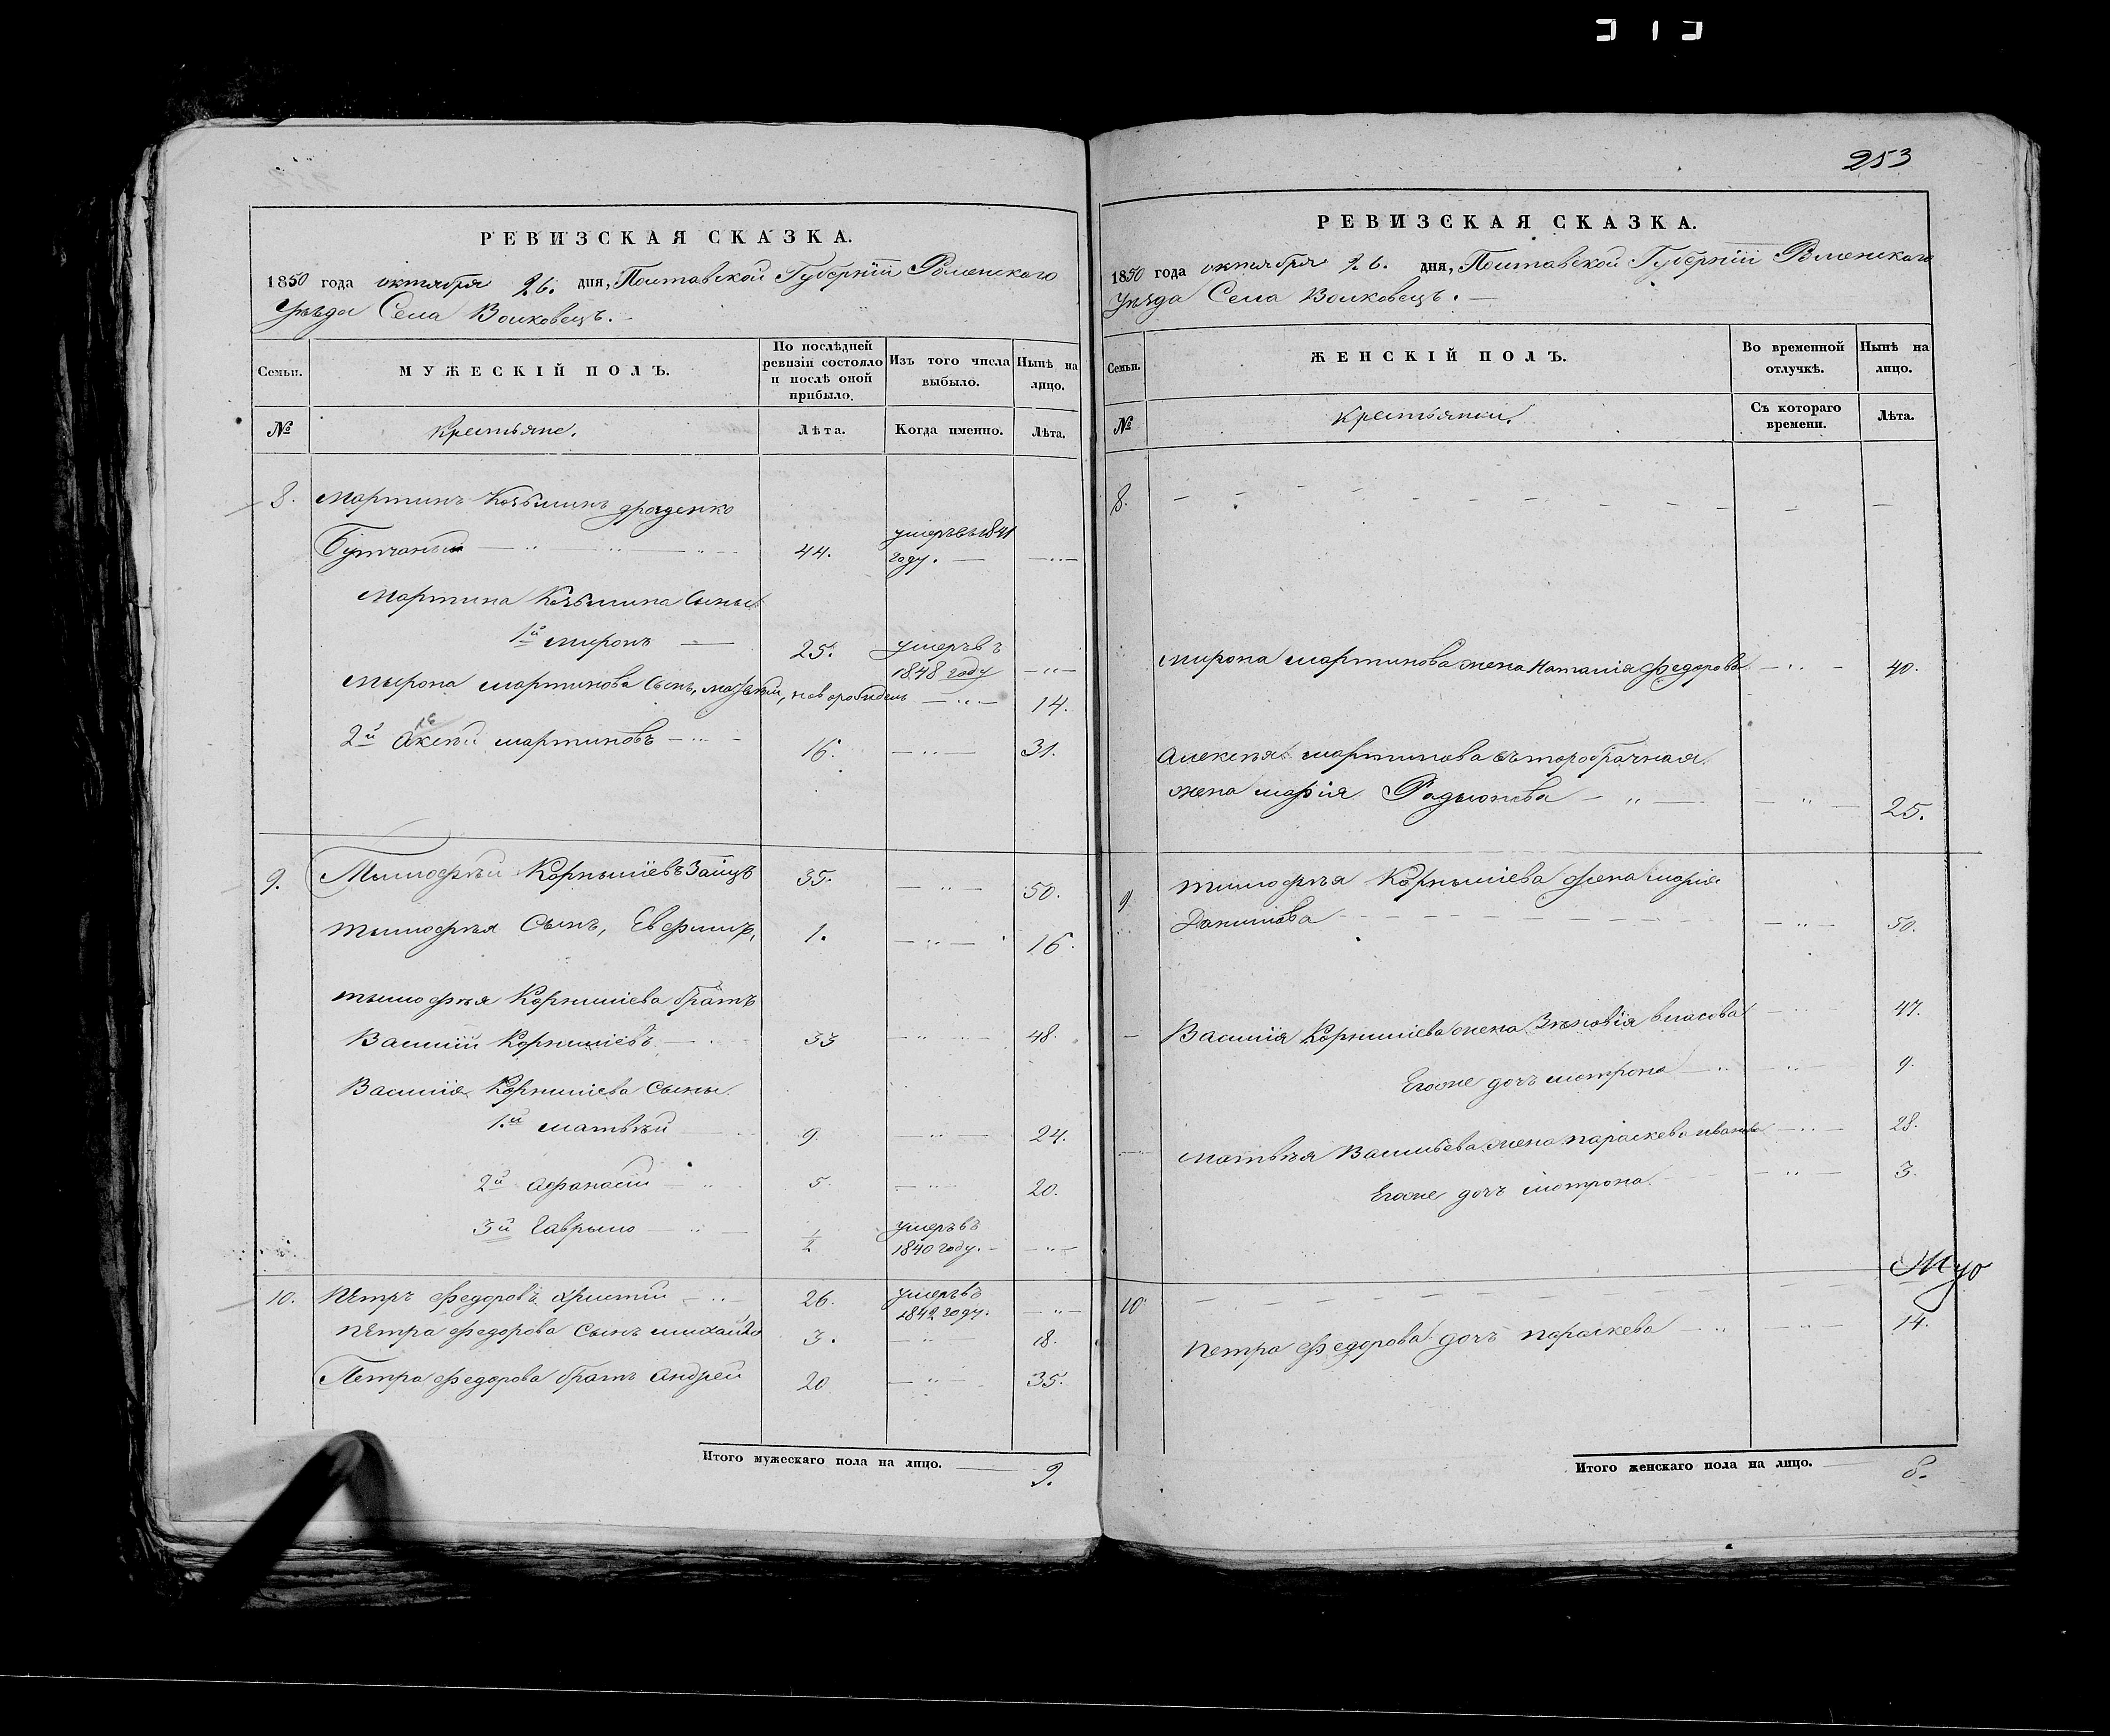 313
РЕВИЗСКАЯ СКАЗКА.
1850 года октября 26. дня, Полтавской Губерніи Роменского
Уѣзда Села Волковецъ.
Семьи.
МУЖЕСКІЙ ПОЛЪ.
По послѣдней ревизіи состояло и послѣ оной прибыло.
Изъ того числа выбыло.
Нынѣ на лицо.
№
Крестьяне.
Лѣта.
Когда именно.
Лѣта.
8. Мартинъ Козьминъ
44. умеръ въ 1841 году.
Мартина Козьмина Сыны
1й Миронъ 25. умеръ въ 1848 году
Мырона Мартинова Сынъ, 14.
2й Алексѣй Мартиновъ 16. 31.
9. Тымофѣй Корнылiевъ Заiцъ 35. 50.
Тымофѣя Сынъ, 1. 16.
тымофѣя Корнилiева братъ
Василiй Корнилiевъ 33 48.
Василiя Корнилiева Сыны
1.й Матвѣй 9 24.
2й Афанасiй 5. 20.
3й Гаврыло 1/2 умеръ въ 1840 году.
10. Пётръ Федоровъ 26. умеръ въ 1842 году.
Пётра Федорова Сынъ Михайло 3. 18.
Петра Федорова братъ Андрей 20 35.
Итого мужескаго пола на лицо. 9.
253
РЕВИЗСКАЯ СКАЗКА.
1850 года октября 26. дня, Полтавской Губерніи Роменского
Уѣзда Села Волковецъ.
Семьи.
ЖЕНСКІЙ ПОЛЪ.
Во временной отлучкѣ.
Нынѣ на лицо.
№
Крестьянки.
Съ котораго времени.
Лѣта.
8.
Мирона Мартинова жена Наталiя Федорова 40.
Алексѣя Мартинова второбрачная
жена Марiя Радыонова 25.
9 Тимофѣя Корнылiева жена Марiя
Данилова 50.
Василiя Корнилiева жена Зѣновiя Власова 47.
Егоже дочь Мотрона 9.
Матвѣя Васильева жена Параскева Иванова 28.
Егоже дочь Мотрона. 3.
10
Петра Федорова дочь Параскева 14.
Итого женскаго пола на лицо. 8.